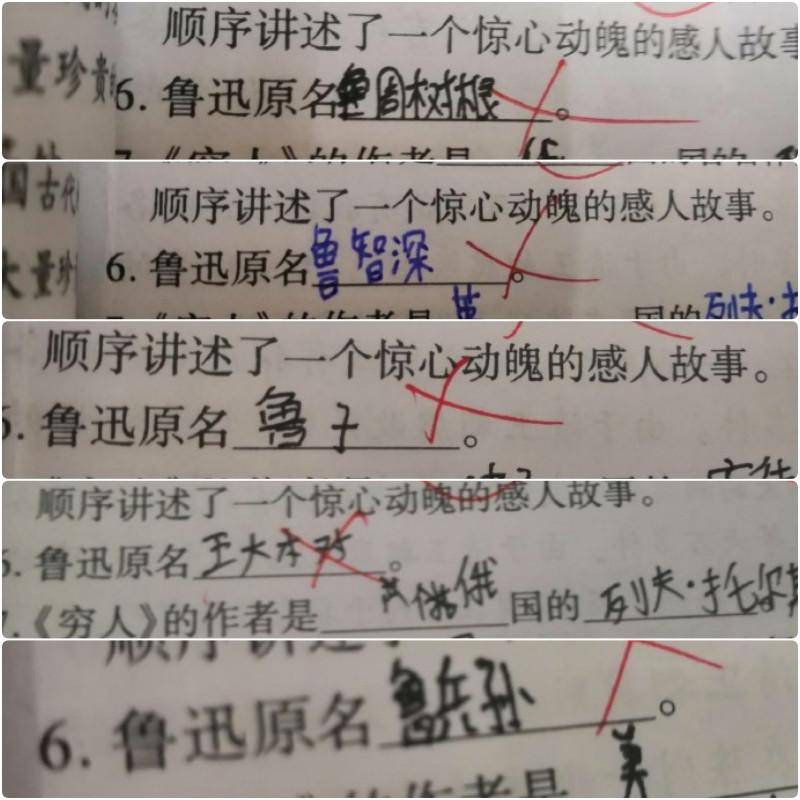 顺序讲述了一个惊心动魄的感人故事
量珍贵
6. 鲁迅原名鲁周树根。
7.《穷人》的作者是
国的
国古代
顺序讲述了一个惊心动魄的感人故事。
6. 鲁迅原名鲁智深。
大量珍
英 国的列夫·托
顺序讲述了一个惊心动魄的感人故事。
6. 鲁迅原名鲁子。
顺序讲述了一个惊心动魄的感人故事。
6. 鲁迅原名王大本巧。
7.《穷人》的作者是 俄 国的列夫·托尔斯
顺序
6. 鲁迅原名鲁兵孙。
的作者是 美